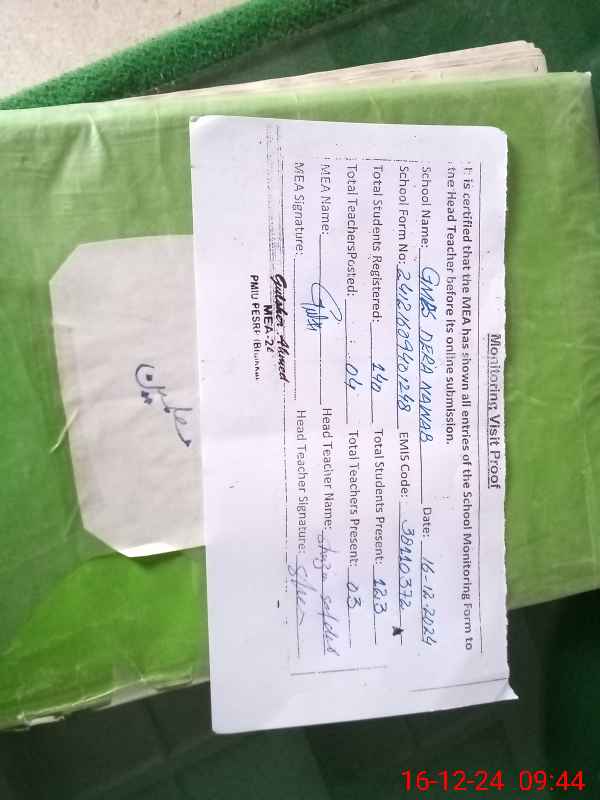 Monitoring Visit Proof
It is certified that the MEA has shown all entries of the School Monitoring Form to
the Head Teacher before its online submission.
School Name: GMPS DERA NAWAB Date: 16-12-2024
School Form No: EMIS Code: 38110372
Total Students Registered: 140 Total Students Present: 123
Total TeachersPosted: 04 Total Teachers Present: 03
MEA Name: Head Teacher Name:
MEA Signature: Head Teacher Signature:
Gulsher Ahmed
MEA-26
PMIU PESRP
16-12-24 09:44